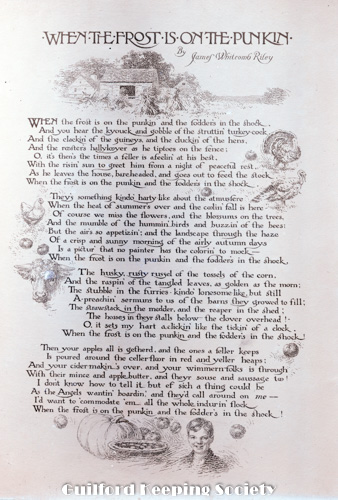 WHEN·THE·FROST·IS·ON·THE·PUNKIN·
By James Whitcomb Riley
WHEN the frost is on the punkin and the fodder's in the shock,
And you hear the kyouck and gobble of the struttin' turkey-cock
And the clackin' of the guineys, and the cluckin' of the hens,
And the rooster's hallylooyer as he tiptoes on the fence;
O, it's then's the times a feller is a-feelin' at his best,
With the risin' sun to greet him from a night of peaceful rest,
As he leaves the house, bareheaded, and goes out to feed the stock,
When the frost is on the punkin and the fodder's in the shock.
They's something kindo' harty-like about the atmusfere
When the heat of summer's over and the coolin' fall is here—
Of course we miss the flowers, and the blossums on the trees,
And the mumble of the hummin'-birds and buzzin' of the bees;
But the air's so appetizin'; and the landscape through the haze
Of a crisp and sunny morning of the airly autumn days
Is a pictur' that no painter has the colorin' to mock—
When the frost is on the punkin and the fodder's in the shock.
The husky, rusty russel of the tossels of the corn,
And the raspin' of the tangled leaves, as golden as the morn;
The stubble in the furries—kindo' lonesome-like, but still
A-preachin' sermuns to us of the barns they growed to fill;
The strawstack in the medder, and the reaper in the shed;
The hosses in theyr stalls below—the clover overhead!—
O, it sets my hart a-clickin' like the tickin' of a clock,
When the frost is on the punkin and the fodder's in the shock!
Then your apples all is getherd, and the ones a feller keeps
Is poured around the celler-floor in red and yeller heaps;
And your cider-makin's over, and your wimmern-folks is through
With their mince and apple-butter, and theyr souse and saussage, too!
I don't know how to tell it—but ef sich a thing could be
As the Angels wantin' boardin', and they'd call around on me—
I'd want to 'commodate 'em—all the whole-indurin' flock—
When the frost is on the punkin and the fodder's in the shock!
Guilford Keeping Society